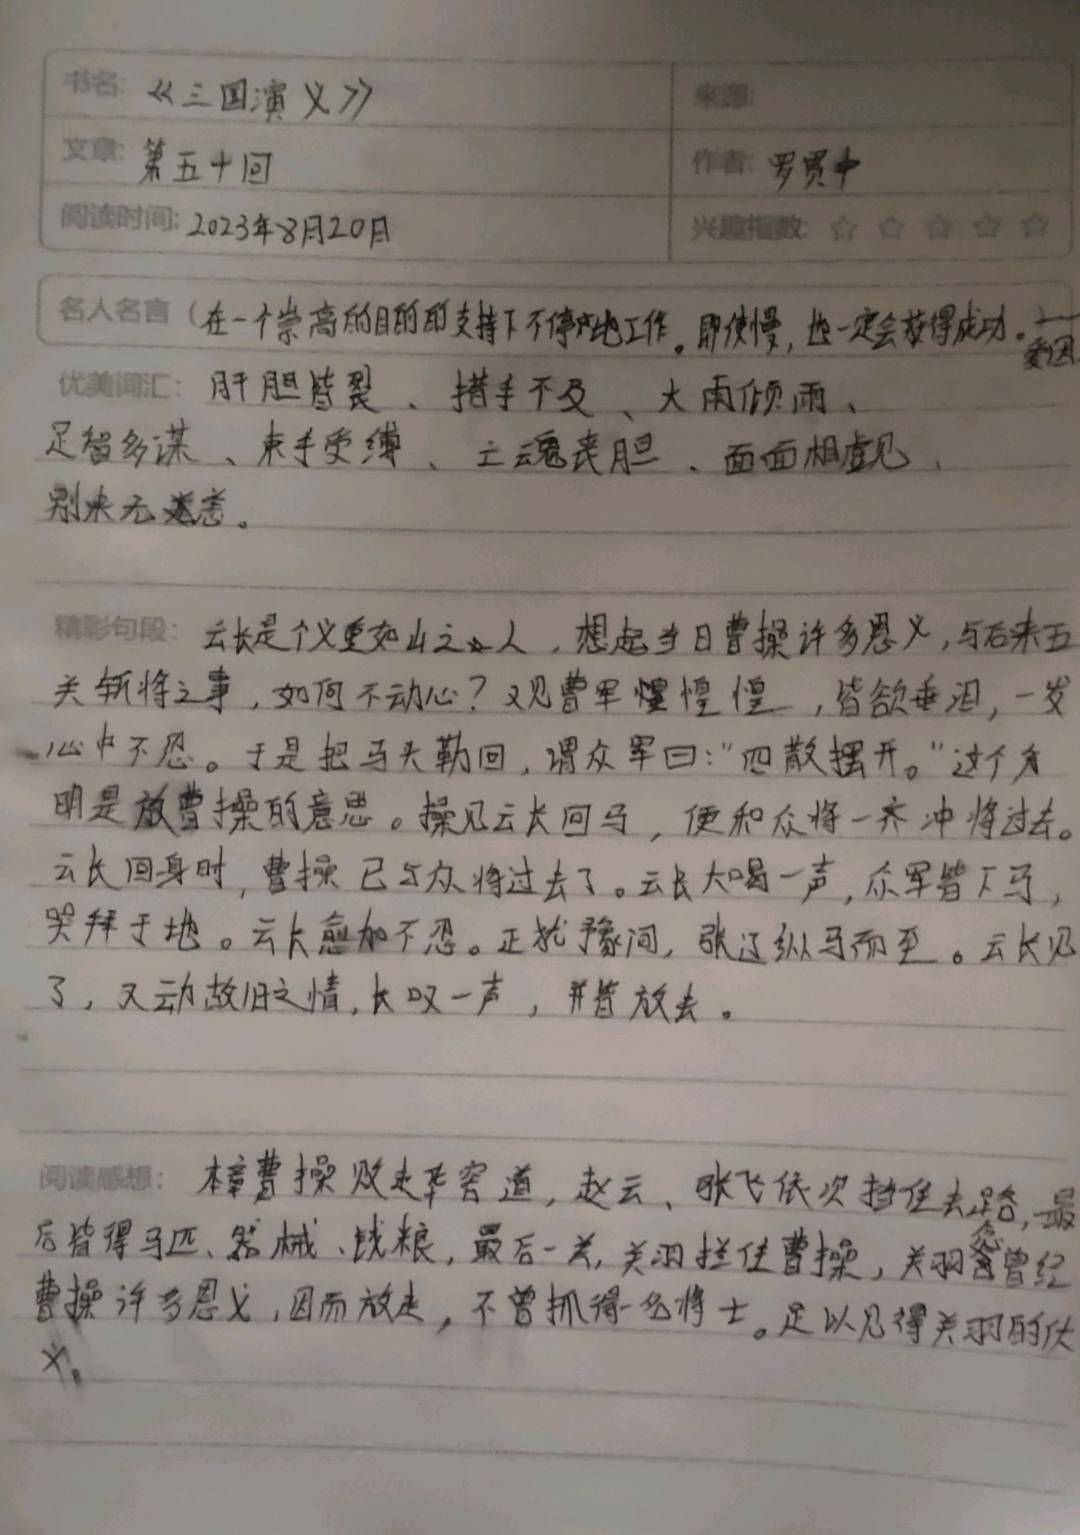 书名: 《三国演义》 来源:
文章: 第五十回 作者: 罗贯中
阅读时间: 2023年8月20日 兴趣指数: ☆ ☆ ☆ ☆ ☆
名人名言 (在一个崇高的目的的支持下不停地工作。即使慢，也一定会获得成功。——
爱因
优美词汇: 肝胆皆裂、措手不及、大雨倾雨、
足智多谋、束手受缚、亡魂丧胆、面面相觑、
别来无恙。
精彩句段: 云长是个义重如山之人，想起当日曹操许多恩义，与后来五
关斩将之事，如何不动心？又见曹军惶惶惶，皆欲垂泪，一发
心中不忍。于是把马头勒回，谓众军曰："四散摆开。"这个分
明是放曹操的意思。操见云长回马，便和众将一齐冲将过去。
云长回身时，曹操已与众将过去了。云长大喝一声，众军皆下马，
哭拜于地。云长愈加不忍。正犹豫间，张辽纵马而至。云长见
了，又动故旧之情，长叹一声，并皆放去。
阅读感想: 本章曹操败走华容道，赵云、张飞依次挡住去路，最
后皆得马匹、器械、钱粮，最后一关，关羽拦住曹操，关羽念曾经
曹操许多恩义，因而放走，不曾抓得一名将士。足以见得关羽的仗
义。